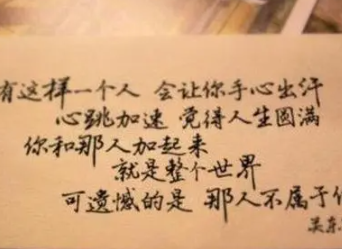 有这样一个人 会让你手心出汗
心跳加速 觉得人生圆满
你和那人加起来
就是整个世界
可遗憾的是 那人不属于你
吴东